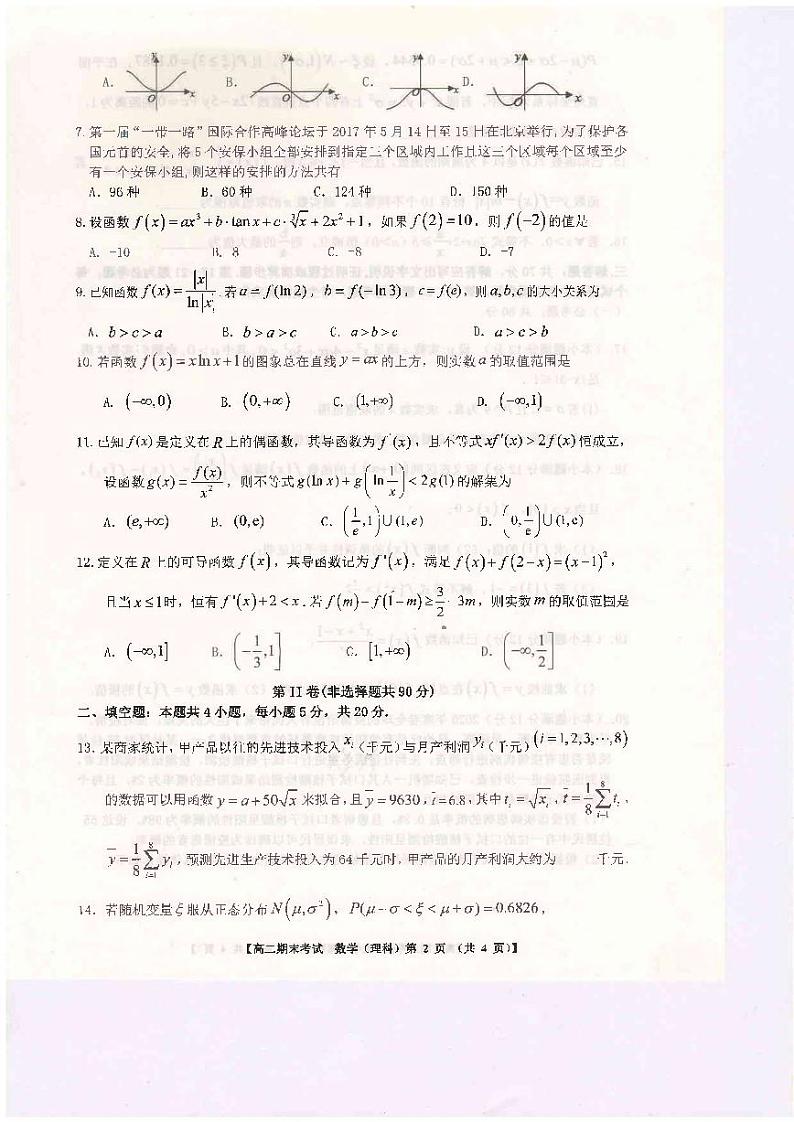 A. B. C. D.
7. 第一届“一带一路”国际合作高峰论坛于 2017 年 5 月 14 日至 15 日在北京举行,为了保护各
国元首的安全,将 5 个安保小组全部安排到指定三个区域内工作且这三个区域每个区域至少
有一个安保小组,则这样的安排的方法共有
A. 96 种 B. 60 种 C. 124 种 D. 150 种
8. 设函数 f(x)=ax³+b·tan x+c·∛x+2x²+1, 如果 f(2)=10, 则 f(−2) 的值是
A. -10 B. 8 C. -8 D. -7
9. 已知函数 f(x)=|x|/ln|x|. 若 a=f(ln2), b=f(−ln3), c=f(e), 则 a,b,c 的大小关系为
A. b>c>a B. b>a>c C. a>b>c D. a>c>b
10. 若函数 f(x)=xlnx+1 的图象总在直线 y=ax 的上方, 则实数 a 的取值范围是
A. (−∞,0) B. (0,+∞) C. (1,+∞) D. (−∞,1)
11. 已知 f(x) 是定义在 R 上的偶函数, 其导函数为 f'(x), 且不等式 xf'(x)>2f(x) 恒成立,
设函数 g(x)=f(x)/x², 则不等式 g(lnx)+g(ln 1/x)<2g(1) 的解集为
A. (e,+∞) B. (0,e) C. (1/e,1)∪(1,e) D. (0,1/e)∪(1,e)
12. 定义在 R 上的可导函数 f(x), 其导函数记为 f'(x), 满足 f(x)+f(2−x)=(x−1)²,
且当 x≤1 时, 恒有 f'(x)+2<x. 若 f(m)−f(1−m)≥3/2−3m, 则实数 m 的取值范围是
A. (−∞,1] B. (−1/3,1] C. [1,+∞) D. (−∞,1/2]
第 II 卷(非选择题共 90 分)
二、填空题: 本题共 4 小题, 每小题 5 分, 共 20 分.
13. 某商家统计, 甲产品以往的先进技术投入 xᵢ (千元) 与月产利润 yᵢ (千元) (i=1,2,3,⋯,8)
的数据可以用函数 y=a+50√x 来拟合, 且 y̅=9630, t̅=6.8, 其中 tᵢ=√xᵢ, t̅=1/8 ∑⁸ᵢ₌₁ tᵢ,
y̅=1/8 ∑⁸ᵢ₌₁ yᵢ, 预测先进生产技术投入为 64 千元时, 甲产品的月产利润大约为 千元.
14. 若随机变量 ξ 服从正态分布 N(μ,σ²), P(μ−σ<ξ<μ+σ)=0.6826,
【高二期末考试 数学(理科)第 2 页 (共 4 页)】